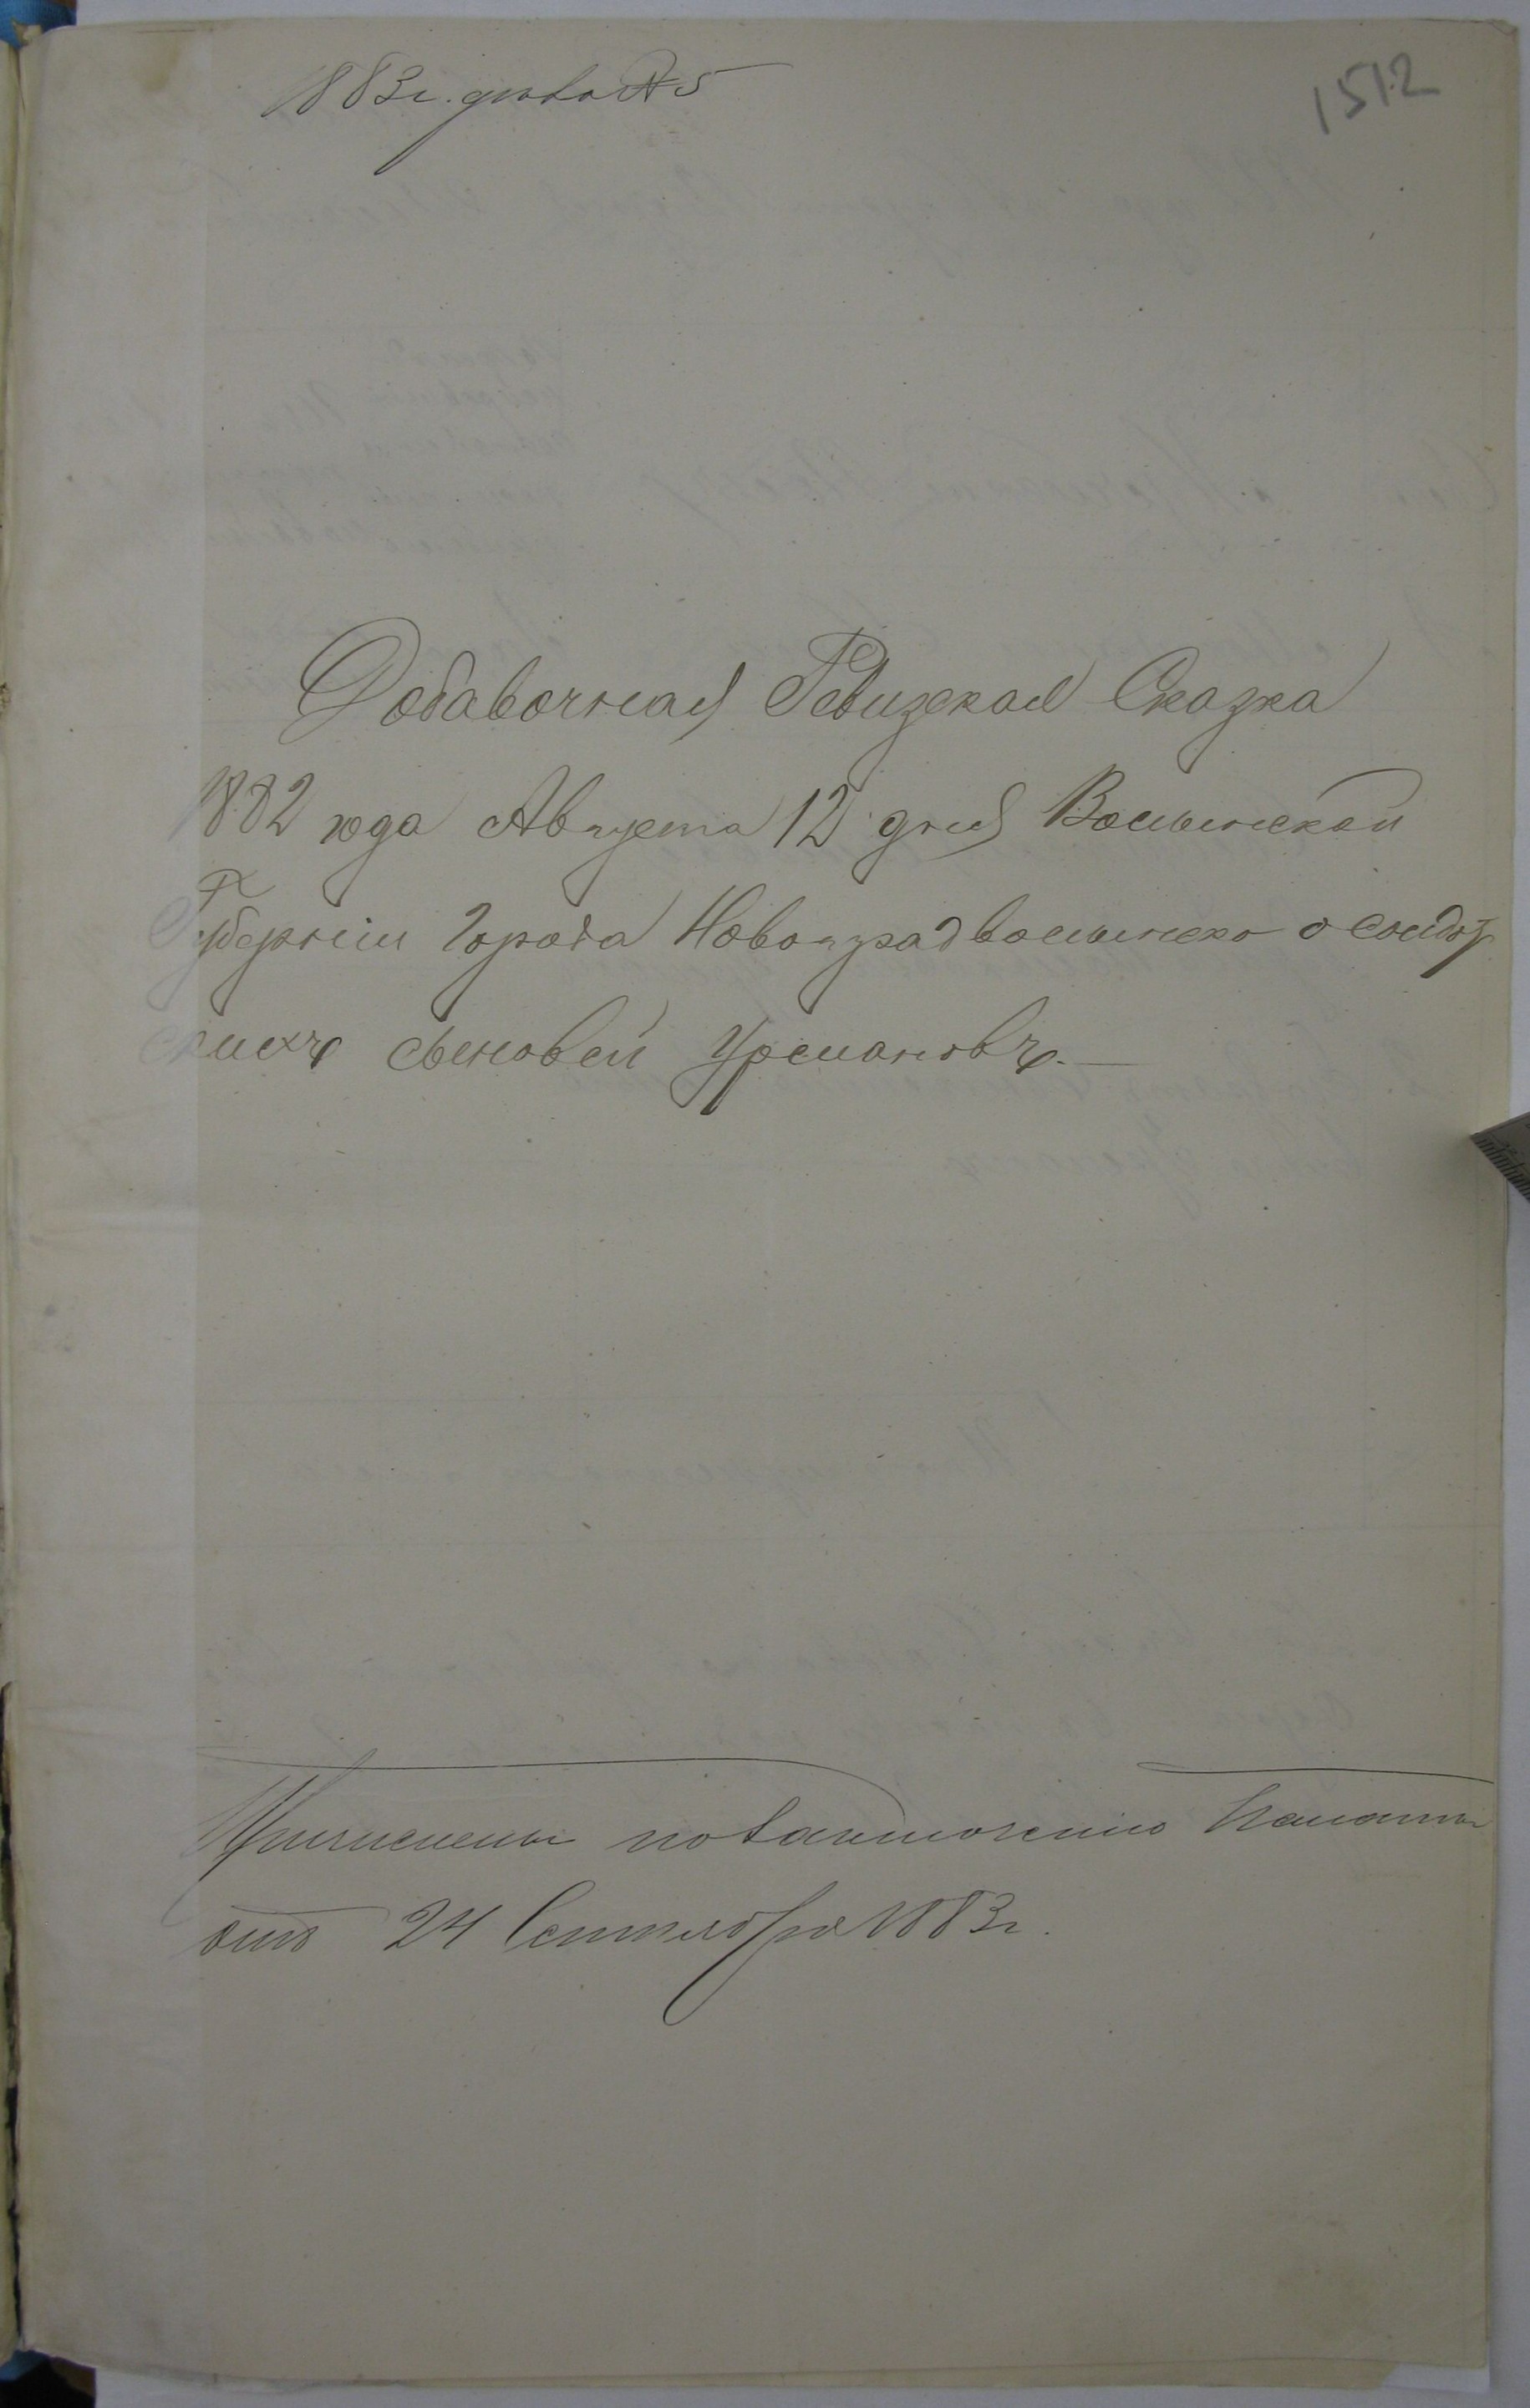 1883г. дѣло № 5
1512
Добавочная Ревизская Сказка
1882 года Августа 12 дня Волынской
Губерніи Города Новоградволынска о солдат
скихъ сыновей Урмановъ.
Причислены по Палаты
отъ 24 Сентября 1883г.